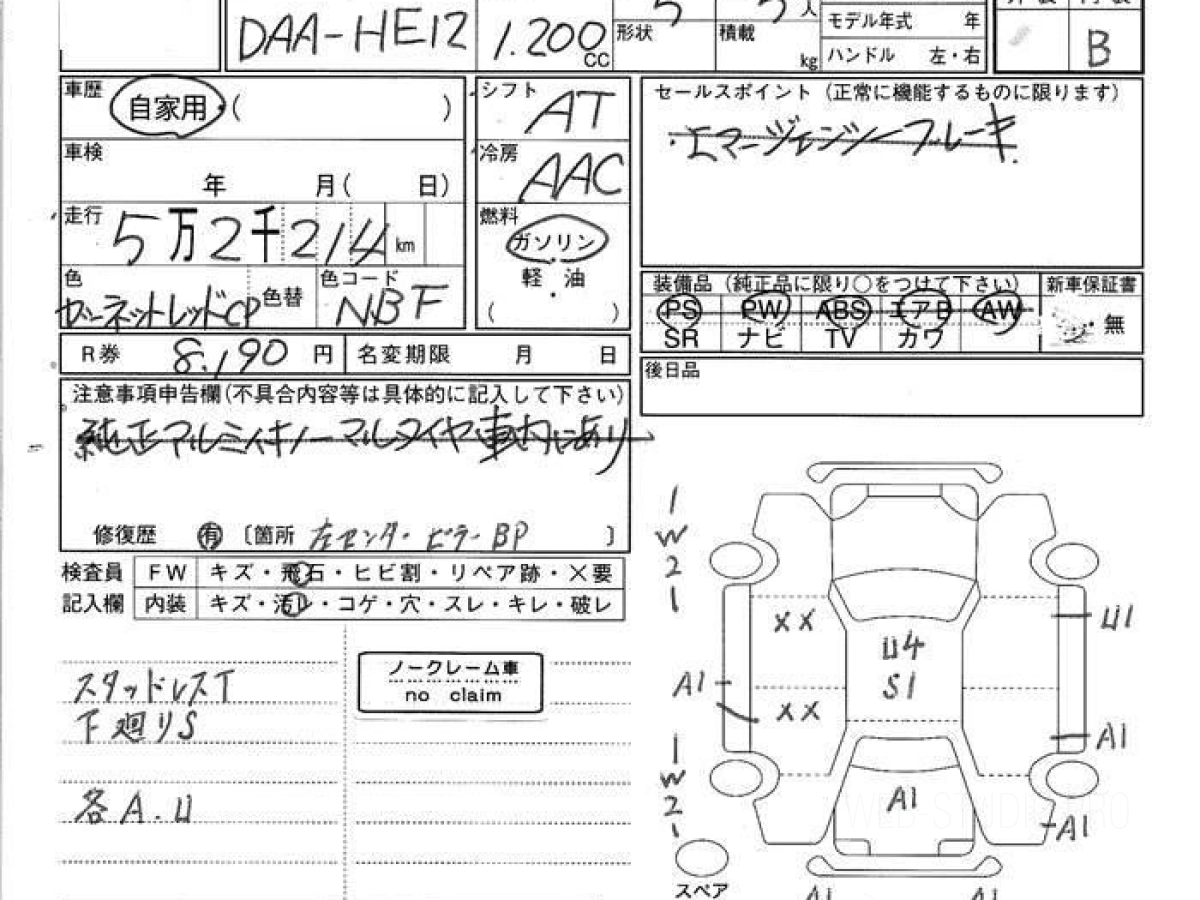 DAA-HE12 1.200 CC
形状 積載 kg
人
モデル年式 年
ハンドル 左・右
B
車歴 自家用 ( )
車検 年 月( 日)
走行 5万2千214 km
色 ガーネットレッドCP 色替 色コード NBF
シフト AT
冷房 AAC
燃料 ガソリン
軽・油
( )
セールスポイント (正常に機能するものに限ります)
・エマージェンシーブレーキ
装備品 (純正品に限り○をつけて下さい) 新車保証書
PS PW ABS エアB AW
SR ナビ TV カワ 無
後日品
R券 8,190 円 名変期限 月 日
注意事項申告欄(不具合内容等は具体的に記入して下さい)
純正アルミイホノーマルタイヤ車内にあり
修復歴 有 〔箇所 左センターピラーBP 〕
検査員 FW キズ・飛石・ヒビ割・リペア跡・×要
記入欄 内装 キズ・汚レ・コゲ・穴・スレ・キレ・破レ
ノークレーム車
no claim
スタッドレスT
下廻りS
各A.U
1
W
2
1
XX
U4
S1
U1
A1
XX
A1
1
W
2
1
A1
A1
スペア
A1 A1
WEB-STUDIO.PRO